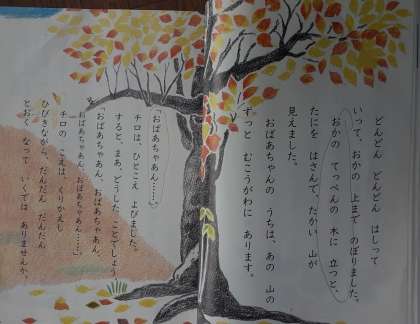 どんどん どんどん はしって
いって、おかの 上まで のぼりました。
おかの てっぺんの 木に 立つと、
たにを はさんで、たかい 山が
見えました。
おばあちゃんの うちは、あの 山の
ずっと むこうがわに あります。
「おばあちゃあん……。」
チロは、ひとこえ よびました。
すると、まあ、どうした ことでしょう。
「おばあちゃあん、おばあちゃあん、
おばあちゃあん、おばあちゃあん……。」
チロの こえは、くりかえし
ひびきながら、だんだん だんだん
とおく なって いくでは ありませんか。